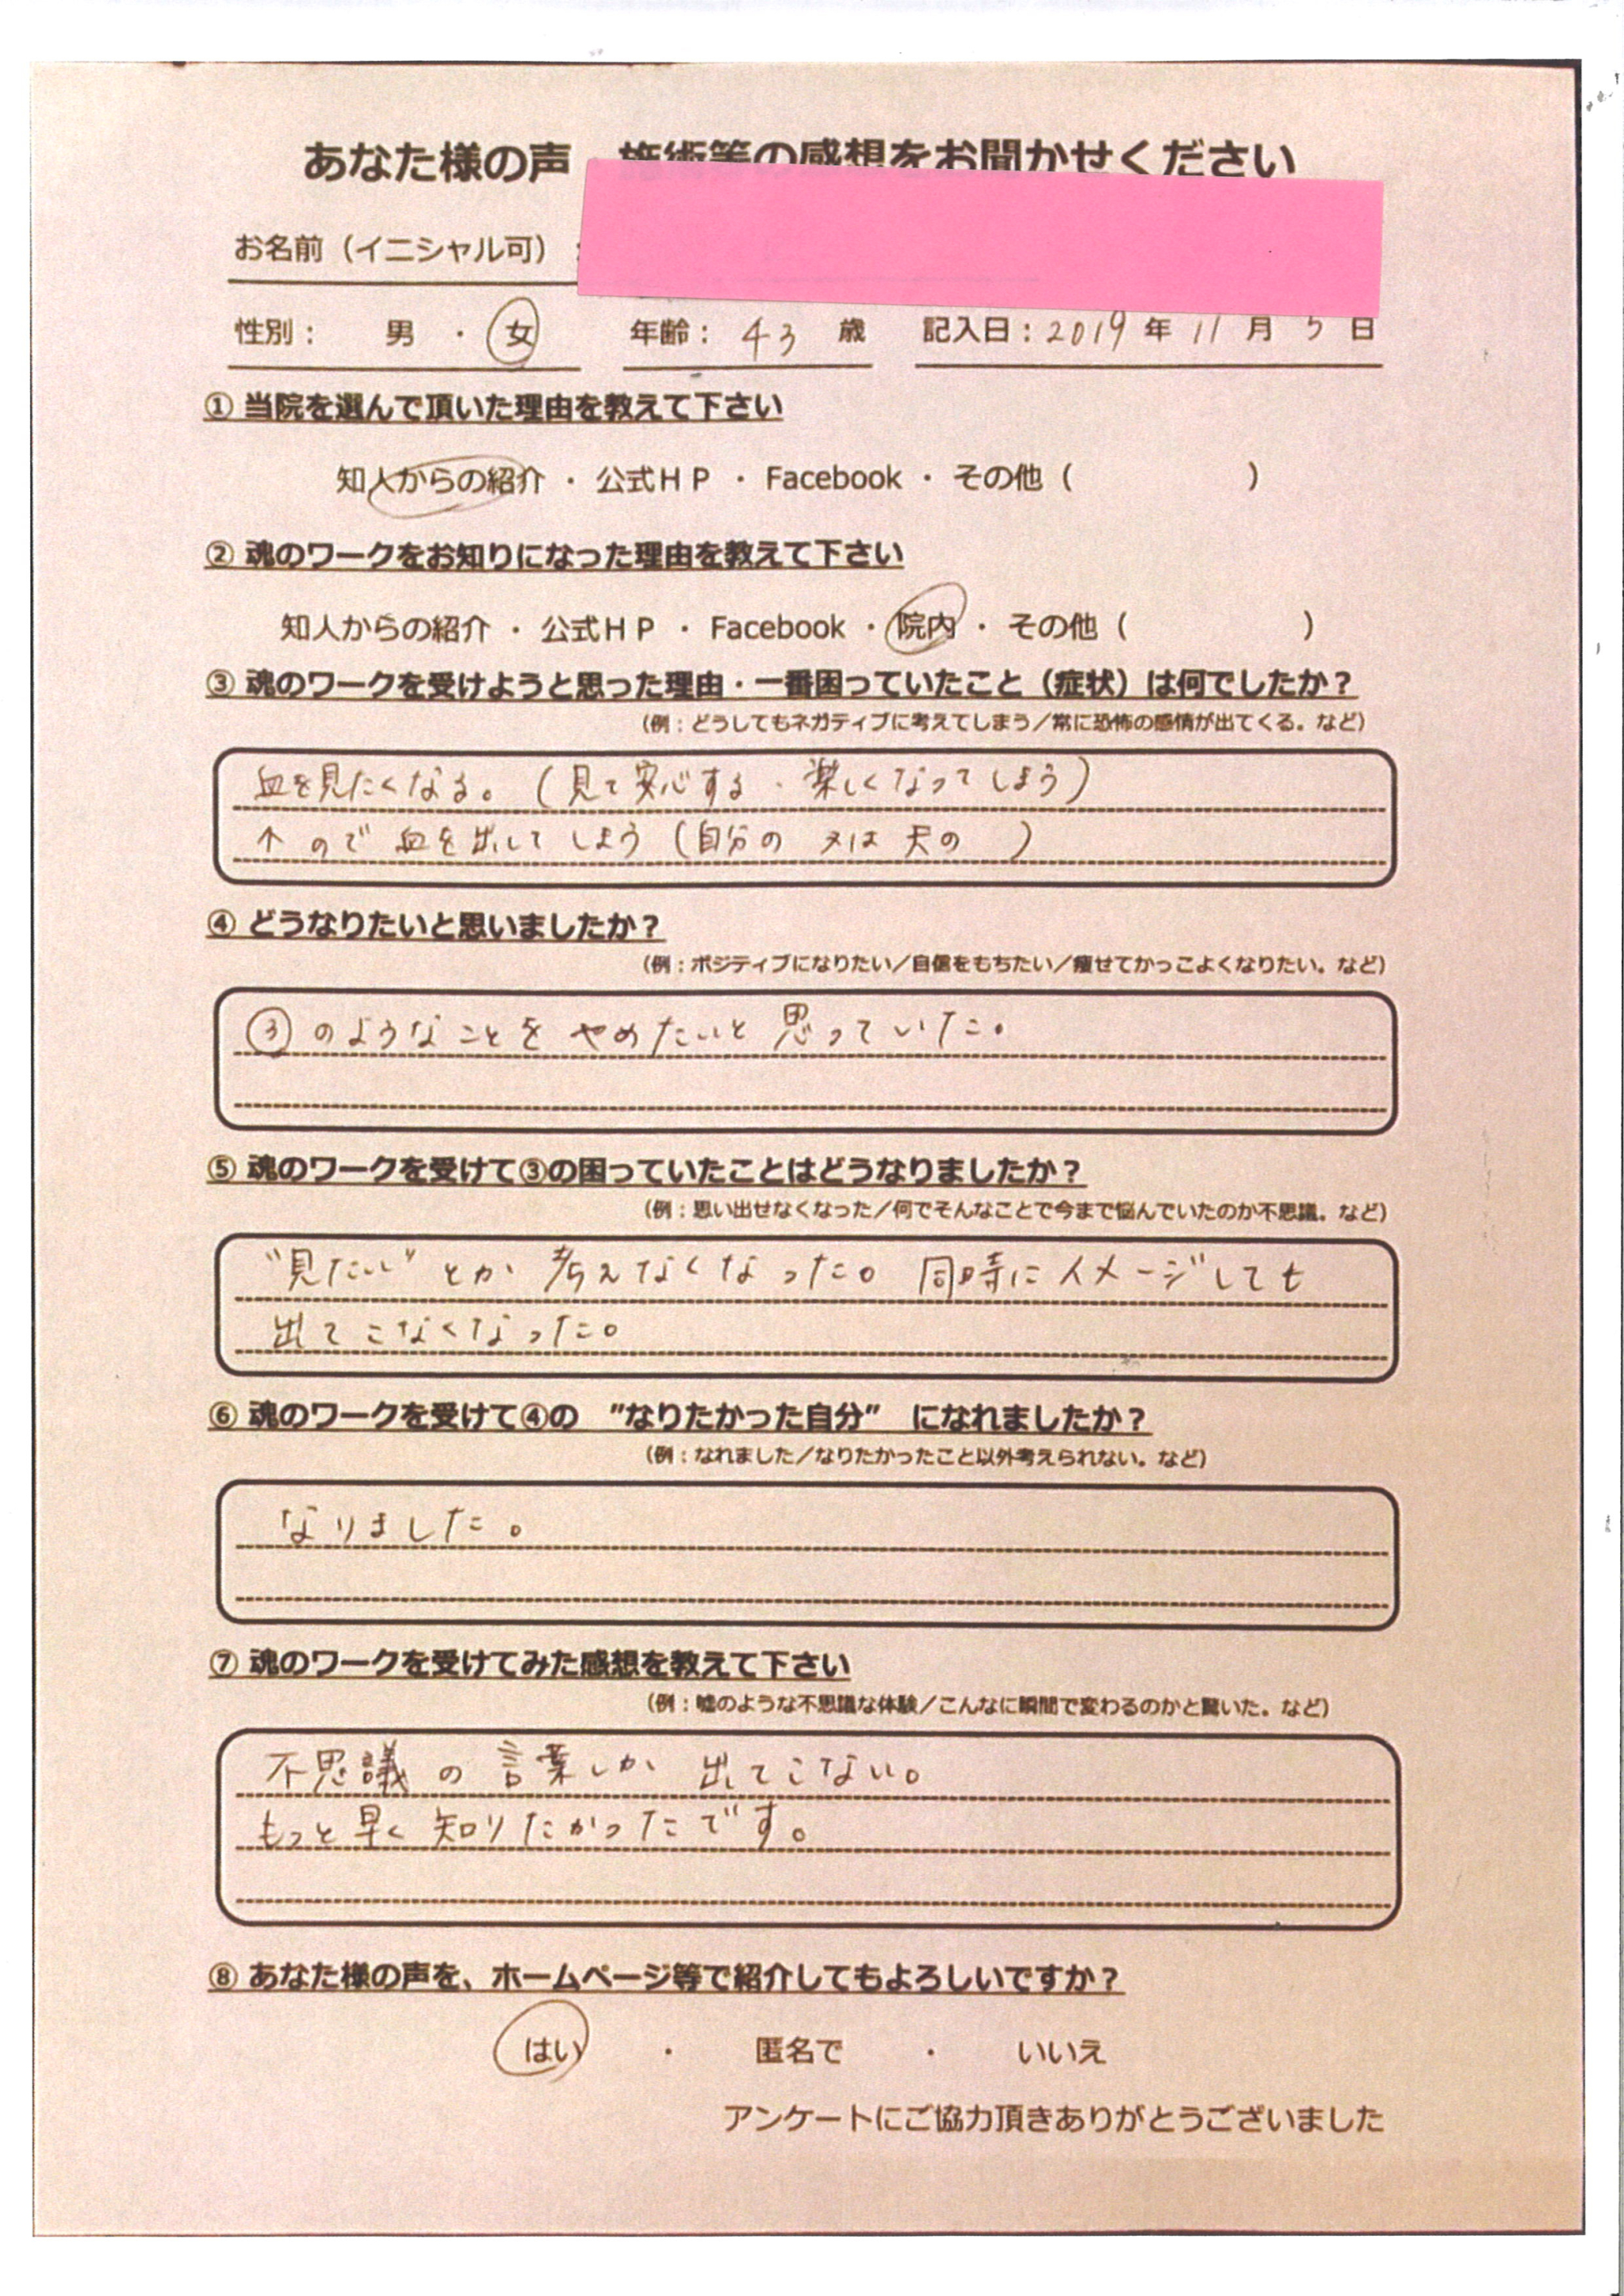 あなた様の声 施術等の感想をお聞かせください
お名前（イニシャル可）
性別： 男 ・ 女 年齢： 43 歳 記入日：2019 年 11 月 5 日
① 当院を選んで頂いた理由を教えて下さい
知人からの紹介 ・ 公式ＨＰ ・ Facebook ・ その他（ ）
② 魂のワークをお知りになった理由を教えて下さい
知人からの紹介 ・ 公式ＨＰ ・ Facebook ・ 院内 ・ その他（ ）
③ 魂のワークを受けようと思った理由・一番困っていたこと（症状）は何でしたか？
（例：どうしてもネガティブに考えてしまう／常に恐怖の感情が出てくる。など）
血を見たくなる。（見て安心する・楽しくなってしまう）
↑ ので 血を出して しまう（自分の 又は 夫の ）
④ どうなりたいと思いましたか？
（例：ポジティブになりたい／自信をもちたい／痩せてかっこよくなりたい。など）
③ のようなことを やめたいと 思っていた。
⑤ 魂のワークを受けて③の困っていたことはどうなりましたか？
（例：思い出せなくなった／何でそんなことで今まで悩んでいたのか不思議。など）
“見たい” とか 考えなくなった。 同時にイメージしても
出てこなくなった。
⑥ 魂のワークを受けて④の ”なりたかった自分” になれましたか？
（例：なれました／なりたかったこと以外考えられない。など）
なりました。
⑦ 魂のワークを受けてみた感想を教えて下さい
（例：嘘のような不思議な体験／こんなに瞬間で変わるのかと驚いた。など）
不思議 の 言葉しか 出てこない。
もっと早く 知りたかったです。
⑧ あなた様の声を、ホームページ等で紹介してもよろしいですか？
はい ・ 匿名で ・ いいえ
アンケートにご協力頂きありがとうございました